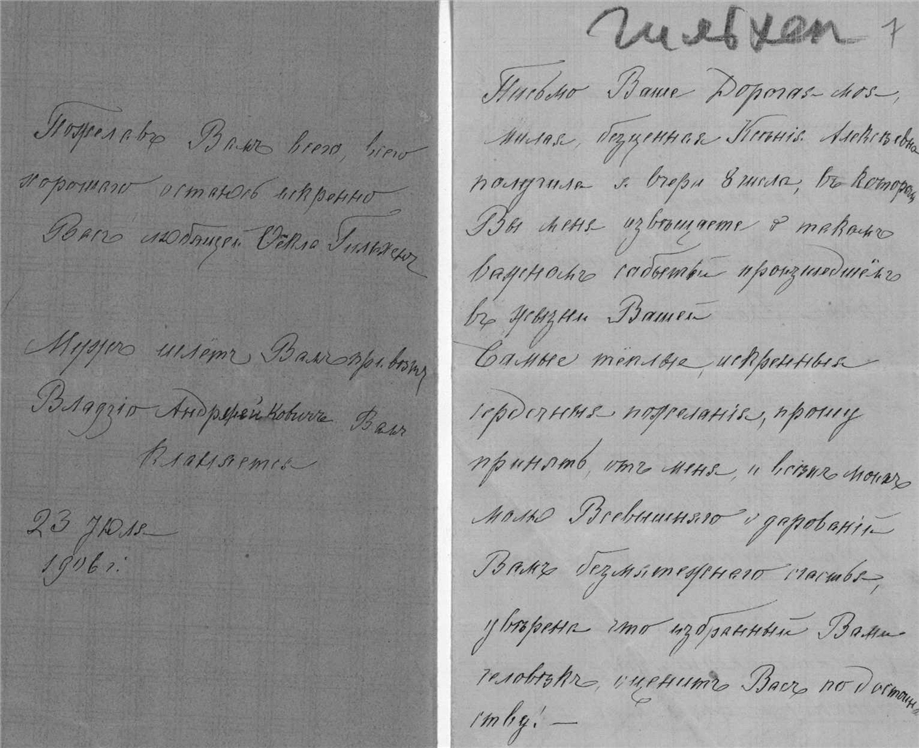 Пожелавъ Вамъ всего, всего
хорошаго остаюсь искренно
Васъ любящей Ѳёкла Гильхенъ
Мужъ шлётъ Вамъ привѣтъ
Владзіо Андрейковичъ Вамъ
кланяется
23 Іюля
1906 г.
Гильхен 7
Письмо Ваше Дорогая моя,
милая, безценная Ксенія Алексѣевна
получила я вчера 8 числа, въ которомъ
Вы меня извѣщаете о такомъ
важномъ событьи произшедшемъ
въ жизни Вашей
Самые тёплые, искренныя
сердечныя пожеланія, прошу
принять, отъ меня, и всѣхъ моихъ
молю Всевышняго о дарованій
Вамъ безмятежнаго счастья,
увѣрена что избранный Вами
человѣкъ, оценитъ Васъ по достоин
ству! —